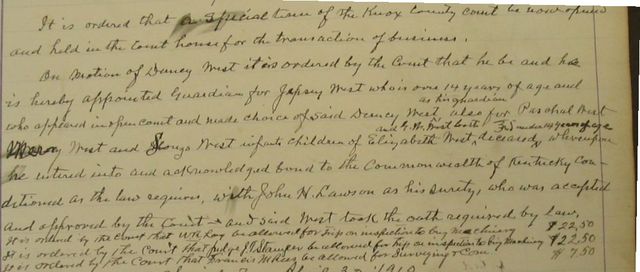 It is ordered that a Special term of the Knox County court be now opened
and held in the Court house for the transaction of business.
On Motion of Dancy West it is ordered by the Court that he be and he
is hereby appointed Guardian for Jepsey West who is over 14 years of age and
as his guardian
who appeared in open court and made choice of said Dancy West, also for Paschal West
and G. W. West both 3rd under 14 years of age
West and Alonzo West infants children of Elizabeth West, deceased, whereupon
he entered into and acknowledged bond to the Commonwealth of Kentucky Con-
ditioned as the law requires, with John H. Lawson as his surety, who was accepted
and approved by the Court and said West took the oath required by law.
It is ordered by the Court that W.R. Lay be allowed for trip on inspection to buy Machinery $22.50
It is ordered by the Court that Judge J.S. be allowed for trip on inspection to buy Machinery $22.50
It is ordered by the Court that Francis M. be allowed for Surveying $7.50